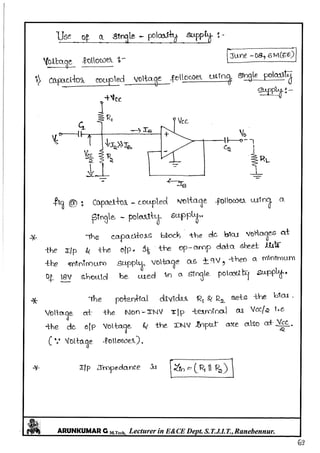 Use of a single - polarity supply :-
June -08, 6M(EE)
Voltage follower :-
1) Capacitor coupled voltage follower using single polarity
supply :-
+Vcc
R1
Vcc
C1
IB
I2>>IB
R2
V0
C2
RL
IB
fig ⓐ : Capacitor - coupled voltage follower using a
single - polarity supply.
* The capacitors block the dc bias voltages at
the I/p & the o/p. If the op-amp data sheet lists
the minimum supply voltage as ±9V, then a minimum
of 18V should be used in a single polarity supply.
* The potential divider R1 & R2 sets the bias.
Voltage at the Non-INV I/p terminal as Vcc/2 i.e
the dc o/p voltage & the INV Input are also at Vcc/2.
(∵ Voltage follower).
* I/p Impedance is Zin = (R1 || R2)
ARUNKUMAR G M.Tech, Lecturer in E&CE Dept. S.T.J.I.T., Ranebennur.